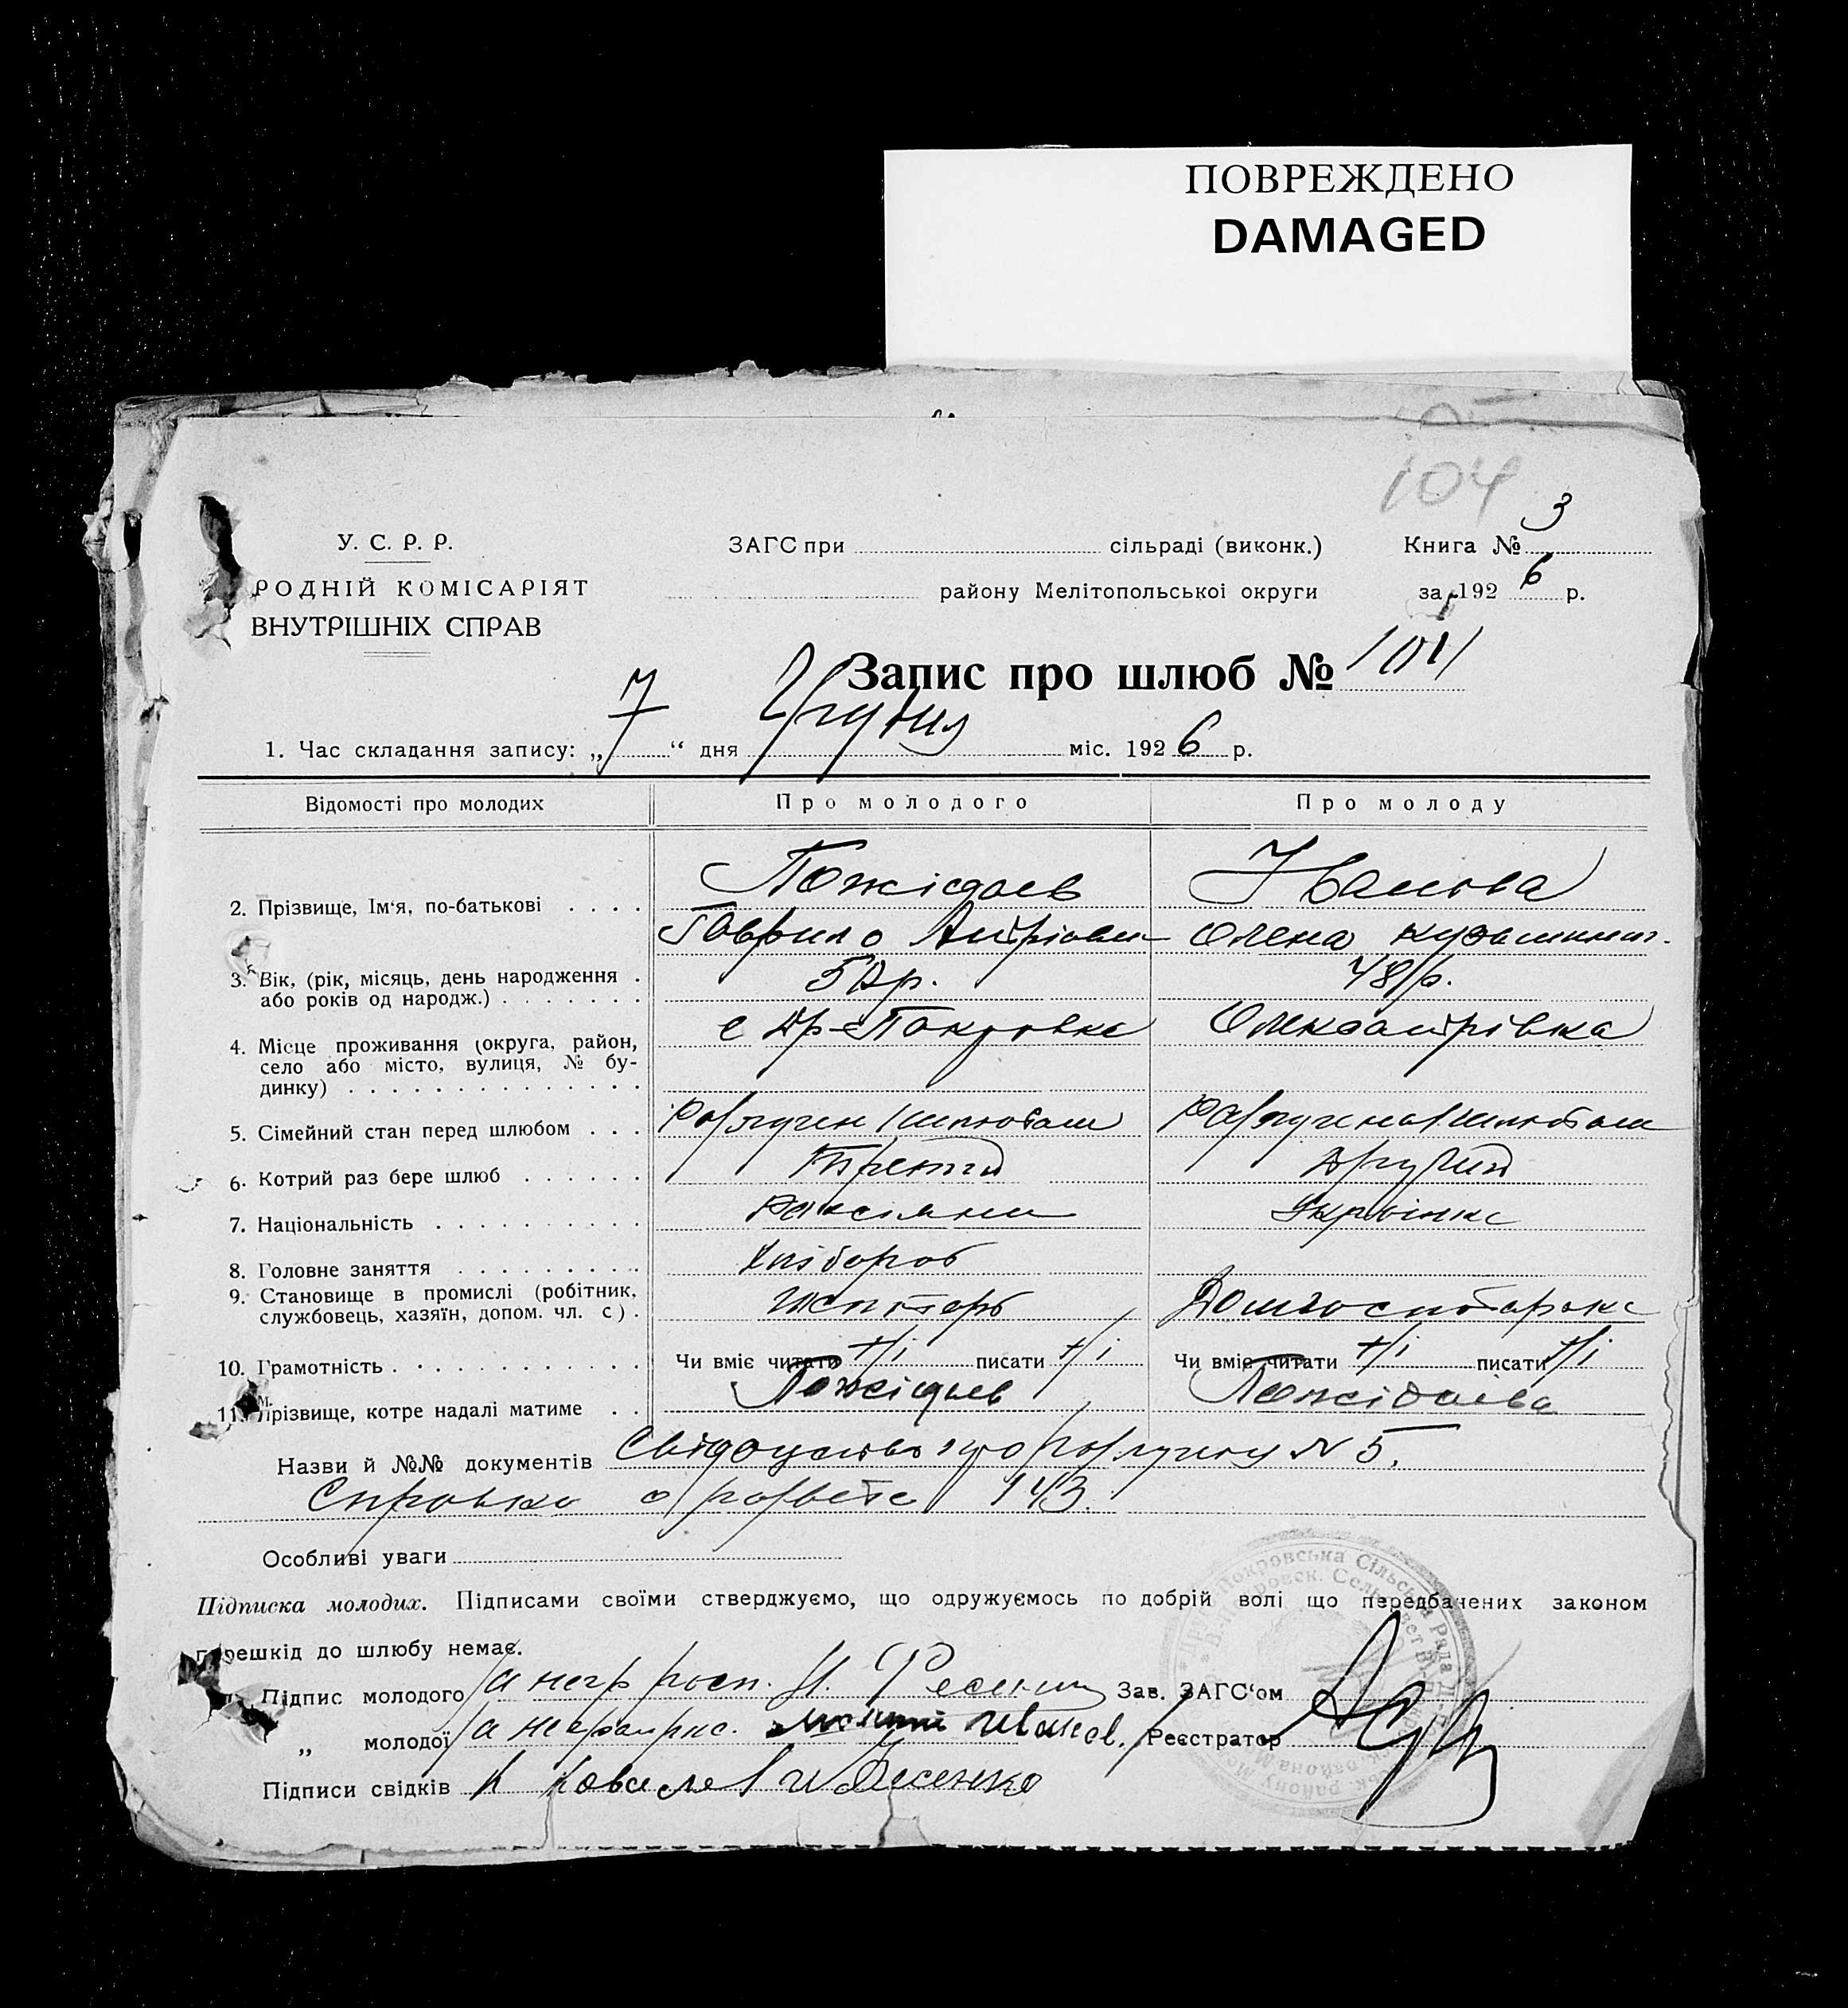 ПОВРЕЖДЕНО
DAMAGED
104
У. С. Р. Р.
РОДНІЙ КОМІСАРІЯТ
ВНУТРІШНІХ СПРАВ
ЗАГС при сільраді (виконк.)
району Мелітопольської округи
Книга № 3
за 1926 р.
Запис про шлюб № 104
1. Час складання запису: „7“ дня Грудня міс. 1926 р.
Відомості про молодих Про молодого Про молоду
2. Прізвище, Ім'я, по-батькові . . . . Пожідаев Іванова
Гаврило Олена
3. Вік, (рік, місяць, день народження . 48 р.
або років од народж.) . . . . . . .
4. Місце проживання (округа, район, с Др-Покровка Олександрівка
село або місто, вулиця, № бу-
динку) . . . . . . . . . . . . . .
5. Сімейний стан перед шлюбом . . . Розлучен шлюбом Розлучена шлюбом
6. Котрий раз бере шлюб . . . . . . Третій Другий
7. Національність . . . . . . . . . . Українка
8. Головне заняття . . . . . . . . . Хлібороб
9. Становище в промислі (робітник,
службовець, хазяїн, допом. чл. с) . Домгоспотарка
10. Грамотність . . . . . . . . . . . . Чи вміє читати н/і писати н/і Чи вміє читати н/і писати н/і
11. Прізвище, котре надалі матиме . . Пожідаев Пожідаєва
Назви й №№ документів Свідоцтво про розлуку № 5.
Справка о разводе 143.
Особливі уваги
Підписка молодих. Підписами своїми стверджуємо, що одружуємось по добрій волі що передбачених законом
перешкід до шлюбу немає.
Підпис молодого за негр росп. Зав. ЗАГС'ом
„ молодої за неграм рис. Реєстратор
Підписи свідків
Покровська Сільська Рада